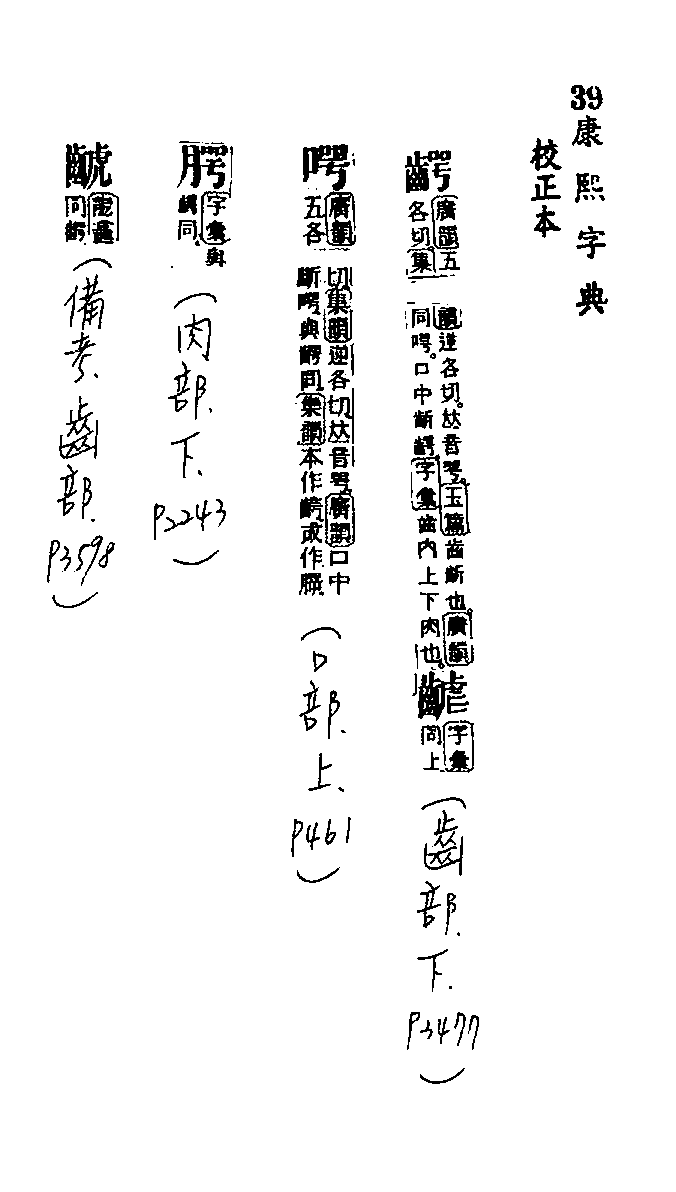 39康熙字典
校正本
齶
廣韻五
各切集
韻逆各切𠀤音咢玉篇齒齗也廣韻
同㗁口中齗齶字彙齒內上下肉也
字彙
同上
(齒部.下.P3477)
㗁
廣韻
五各
切集韻逆各切𠀤音咢廣韻口中
斷㗁與齶同集韻本作齶或作臄
(口部.上.P461)
腭
字彙與
齶同
(肉部.下.P2243)
龍龕
同齶
(備考.齒部.P3598)